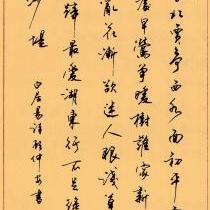 北賈亭西水面初平
處早鶯爭暖樹誰家新
亂花漸欲迷人眼淺草
蹄最愛湖東行不足綠
沙堤
白居易詩 仲安書